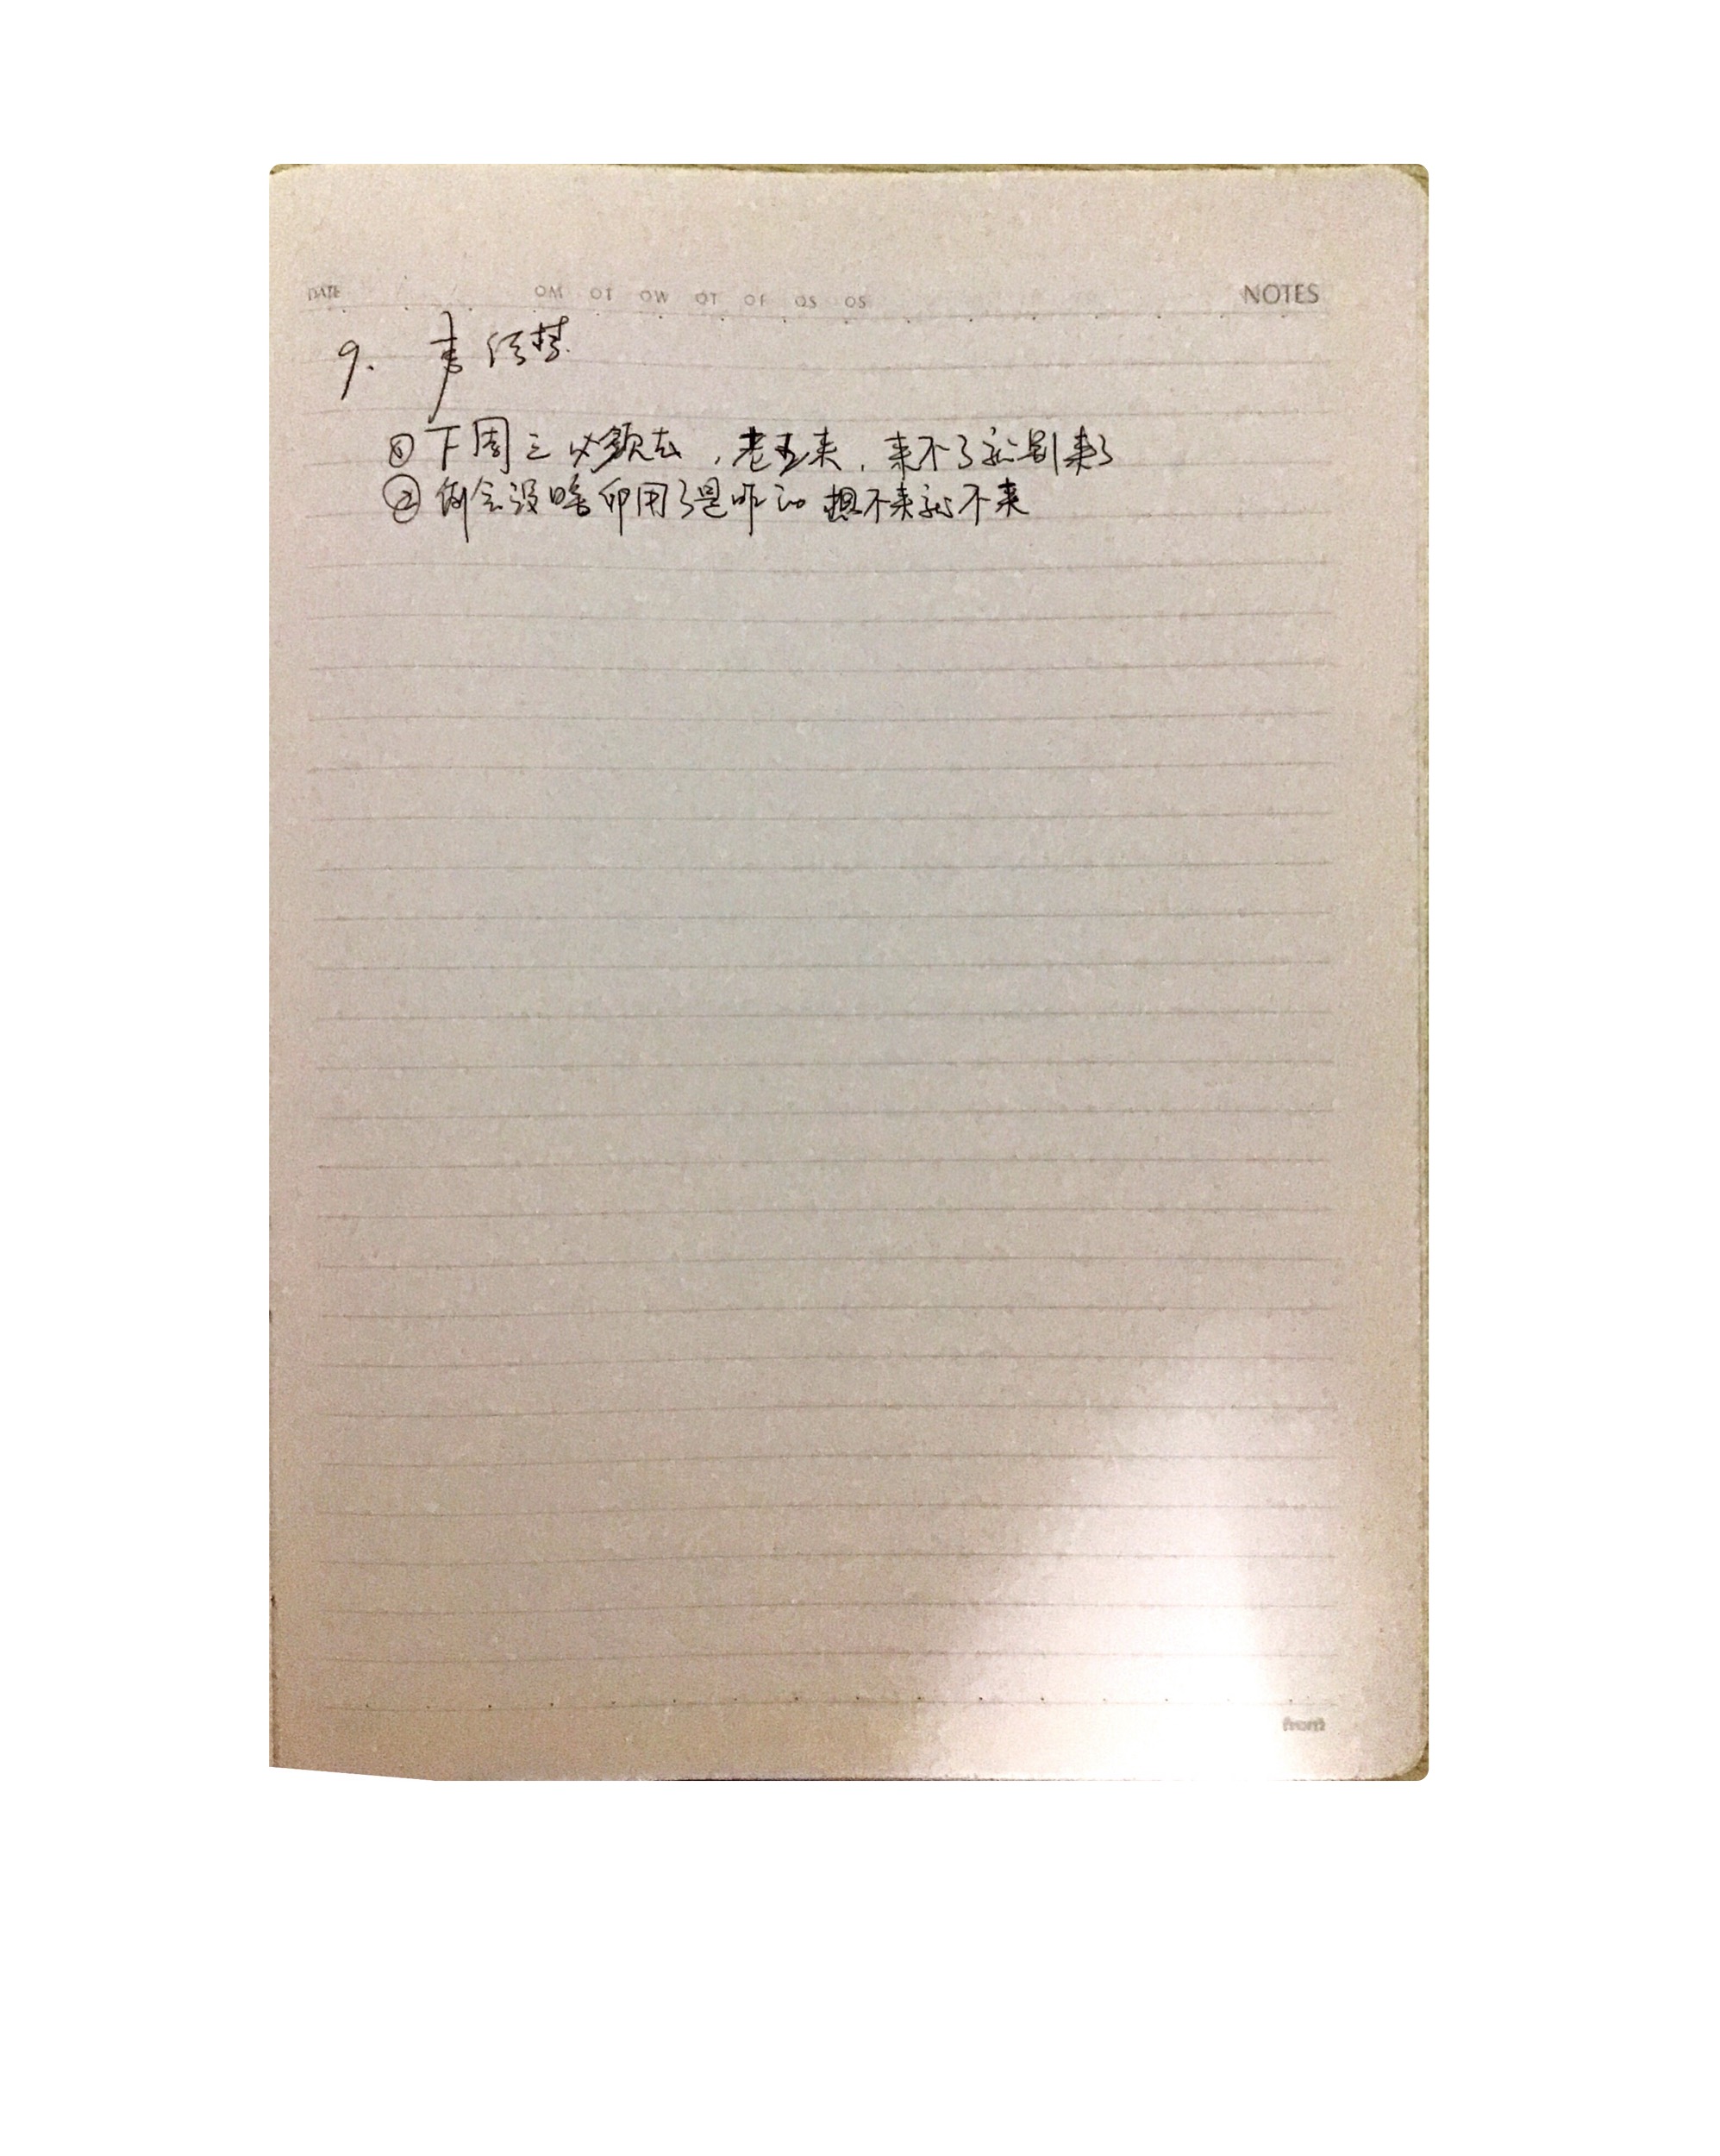 DATE OM OT OW OT OF OS OS NOTES
9.
① 下周三必须去，老五来，来不了就别来了
② 例会没啥卵用了是咋的 想不来就不来
front